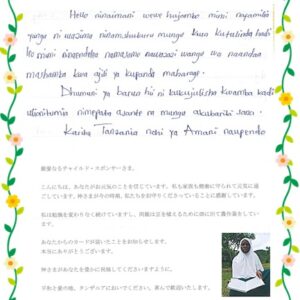 Hello ninaimani wewe hujambo mimi nyamilia
yangu ni wazima ninamshukuru mungu kwa kutulinda hadi
leo mimi ninaendelea na wazazi wangu wa naandaa
mashamba kwa ajili ya kupanda maharage.
Dhumuni ya barua hii ni kukujulisha kwamba kadi
ulionitumia nimepata asante na mungu akubariki sana.
Karibu Tanzania nchi ya Amani na upendo
親愛なるチャイルド・スポンサーさま、
こんにちは。あなたがお元気のことを信じています。私も家族も健康に守られて元気に過
ごしています。神さまが今の時期、私たちをお守りくださっていることに感謝しています。
あなたからのカードが届いたことをお知らせします。
本当にありがとうございます。
神さまがあなたを豊かに祝福してくださいますように。
平和と愛の地、タンザニアにおいでください。喜んで歓迎いたします。